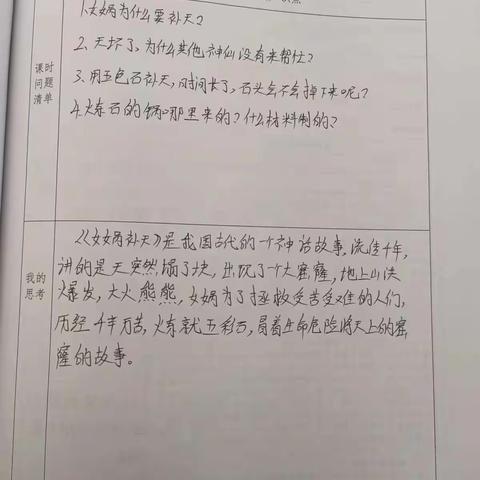 1.女娲为什么要补天?
2、天坏了,为什么其他神仙没有来帮忙?
3、用五色石补天,时间长了,石头会不会掉下来呢?
4.炼石的锅哪里来的?什么材料制的?
课时
问题
清单
《女娲补天》是我国古代的一个神话故事,流传千年,
讲的是天突然塌了块,出现了一个大窟窿,地上山洪
爆发,大火熊熊,女娲为了拯救受苦受难的人们,
历经千辛万苦,炼就五彩石,冒着生命危险将天上的窟
窿的故事。
我的
思考